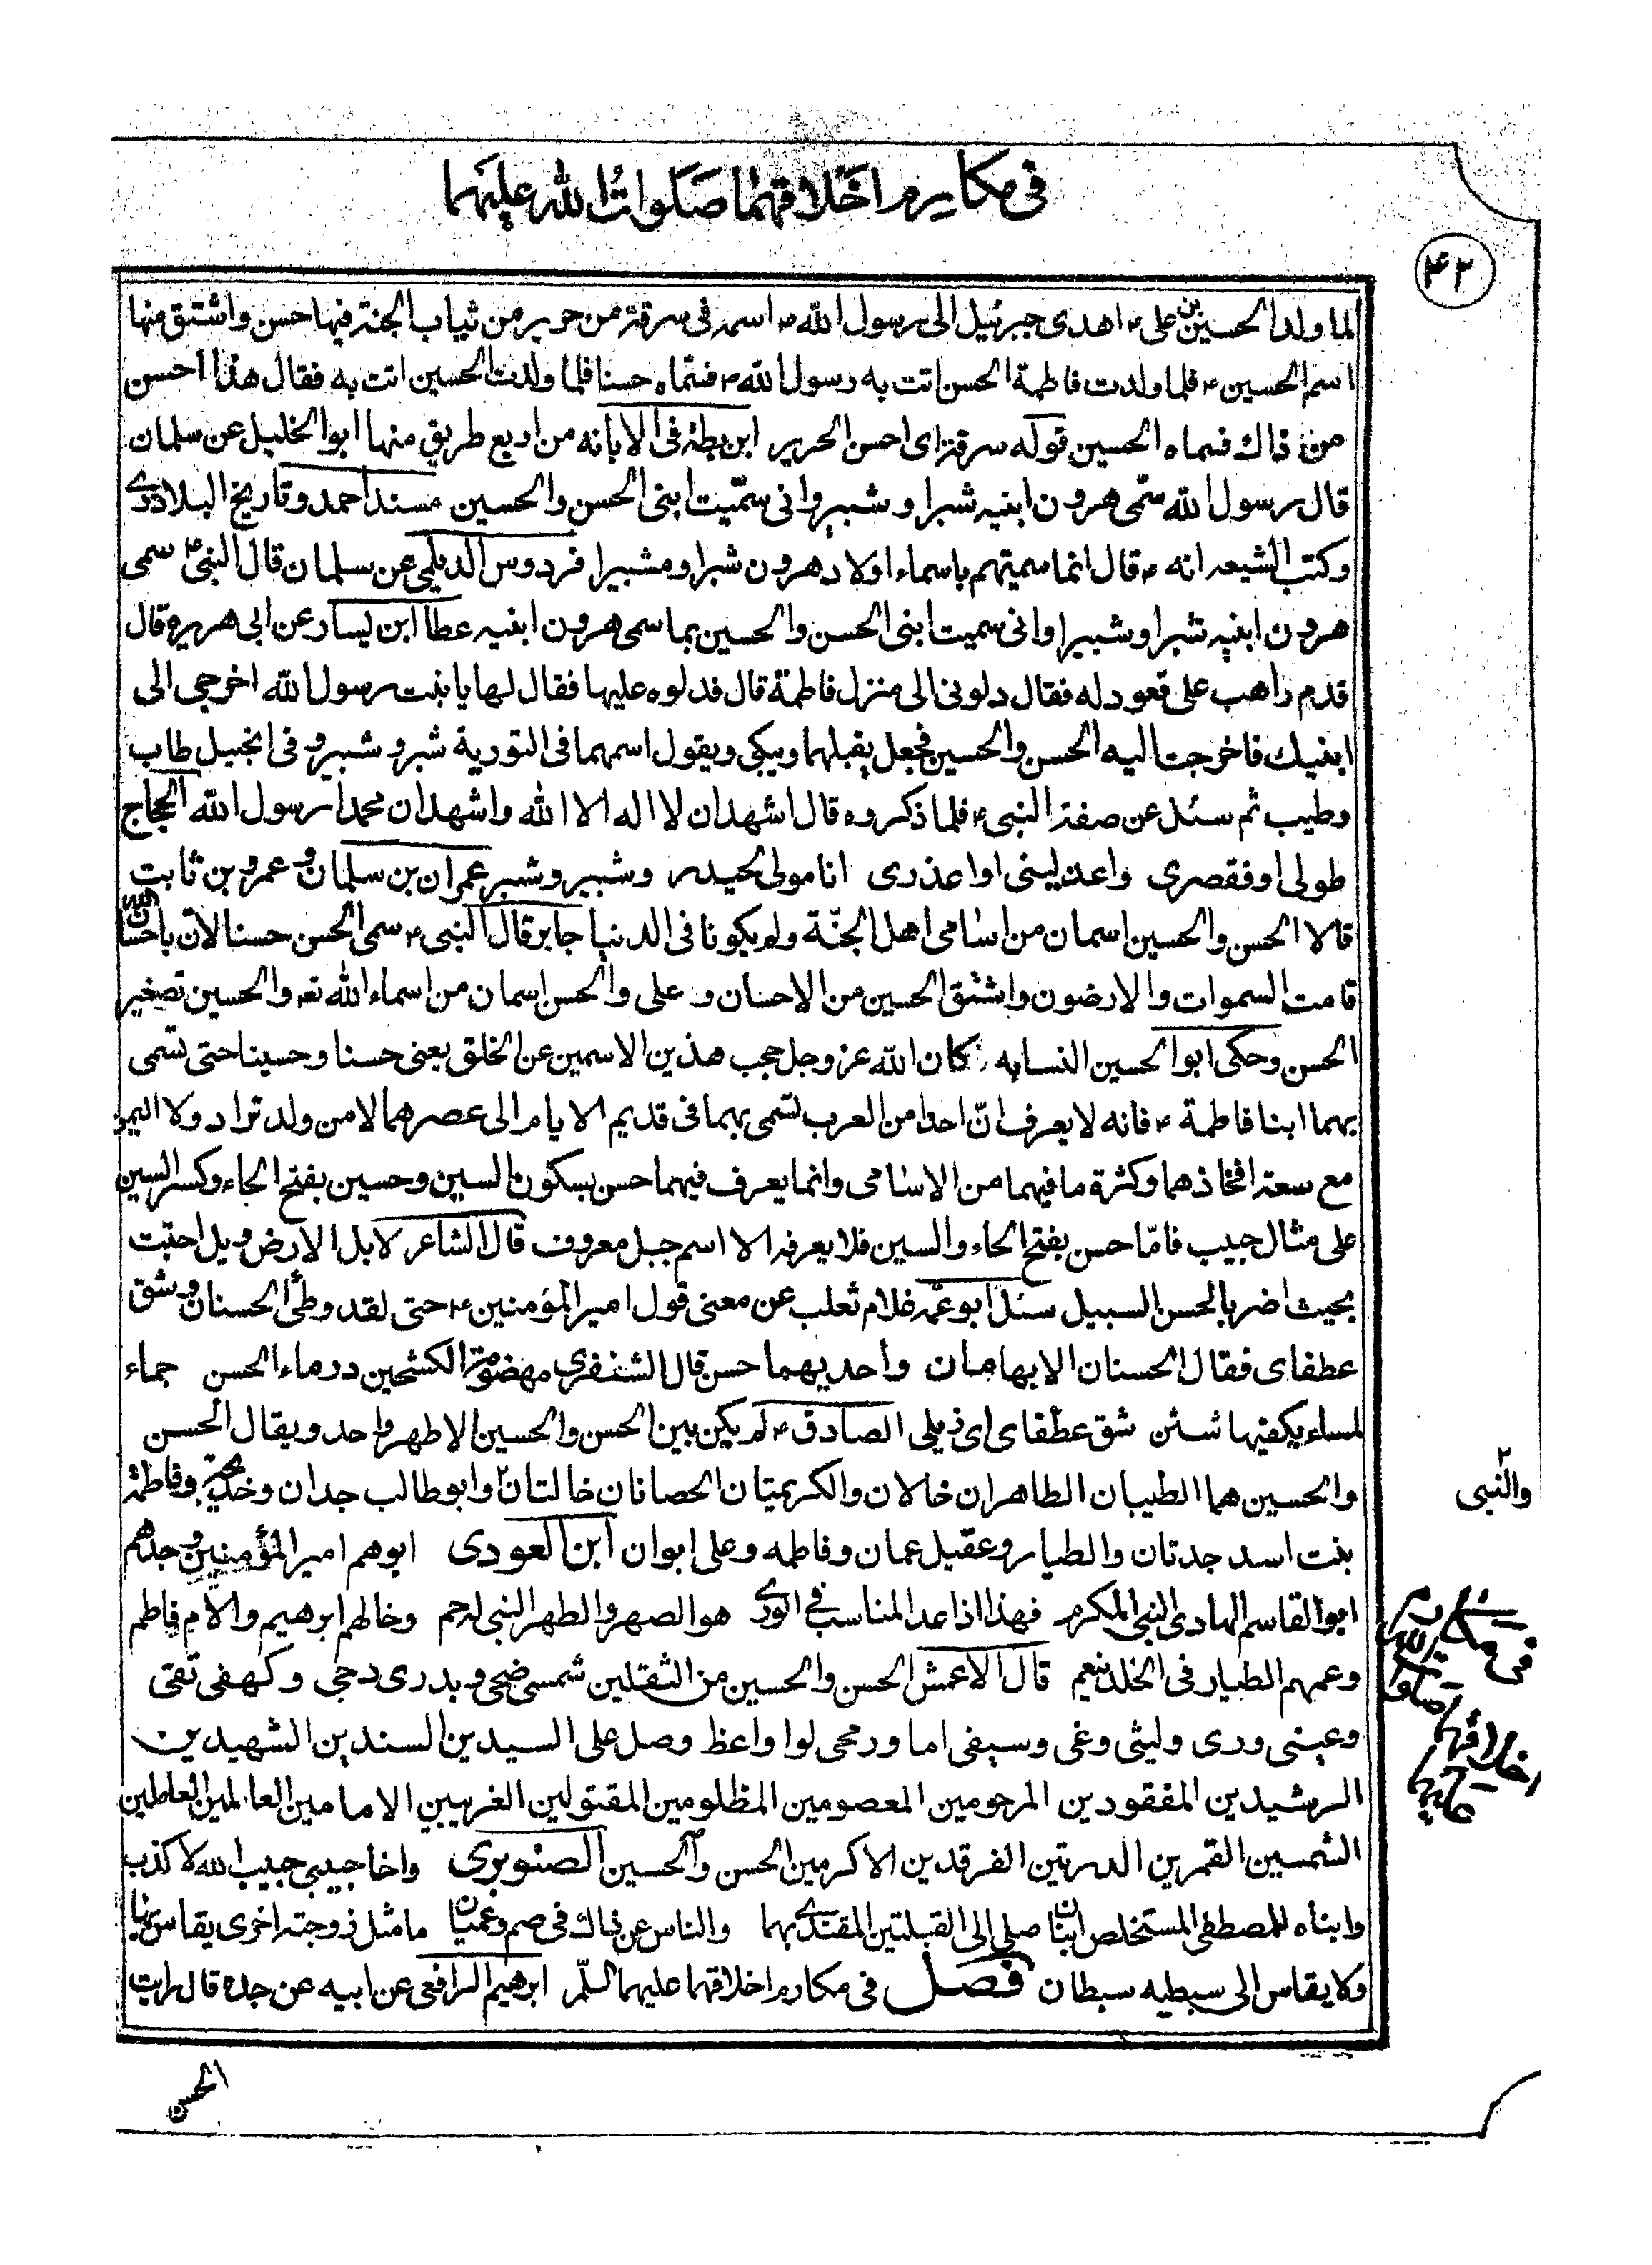 في مكارم اخلاقهما صلوات الله عليهما
٤٢
لما ولد الحسين بن علي ؑ اهدى جبرئيل الى رسول الله ؐ اسمه في سرقة من حرير من ثياب الجنة فيها حسن واشتق منها
اسم الحسين ؑ فلما ولدت فاطمة الحسن اتت به رسول الله ؐ فسماه حسنا فلما ولدت الحسين اتت به فقال هذا احسن
من ذاك فسماه الحسين قوله سرقة اى احسن الحرير ابن بطة في الابانه من اربع طريق منها ابو الخليل عن سلمان
قال رسول الله سمّى هرون ابنيه شبرا و شبيرا وانى سمّيت ابنى الحسن والحسين مسند احمد وتاريخ البلاذرى
وكتب الشيعه انه ؑ قال انما سميتهم باسماء اولاد هرون شبرا ومشبيرا فردوس الديلمى عن سلمان قال النبى ؐ سمى
هرون ابنيه شبرا وشبيرا وانى سميت ابنى الحسن والحسين بما سمى هرون ابنيه عطا ابن يسار عن ابى هريره قال
قدم راهب على قعود له فقال دلونى الى منزل فاطمة قال فدلوه عليها فقال لها يا بنت رسول الله اخرجى الى
ابنيك فاخرجت اليه الحسن والحسين فجعل يقبلهما ويبكى ويقول اسمهما فى التورية شبر و شبير و فى انجيل طاب
وطيب ثم سئل عن صفة النبى ؐ فلما ذكروه قال اشهد ان لا اله الا الله واشهد ان محمدا رسول الله الحجاج
طولى او فقصرى واعذلينى او اعذرى انا مولى لحيدر وشبير وشبر عمران بن سلمان و عمرو بن ثابت
قالا الحسن والحسين اسمان من اسامى اهل الجنّة ولم يكونا فى الدنيا جابر قال النبى ؐ سمى الحسن حسنا لان باحسان الله
قامت السموات والارضون واشتق الحسين من الاحسان و على والحسن اسمان من اسماء الله تعه والحسين تصغير
الحسن وحكى ابو الحسين النسابه كان الله عز وجل حجب هذين الاسمين عن الخلق يعنى حسنا وحسينا حتى تسمى
بهما ابنا فاطمة ؑ فانه لا يعرف انّ احدا من العرب تسمى بهما فى قديم الايام الى عصرهما لا من ولد نزاد ولا اليمن
مع سعة افخاذهما وكثرة ما فيهما من الاسامى وانما يعرف فيهما حسن بسكون السين وحسين بفتح الحاء وكسر السين
على مثال حبيب فامّا حسن بفتح الحاء والسين فلا يعرفه الا اسم جبل معروف قال الشاعر لابل الارض ويل احتبت
بحيث اضر بالحسن السبيل سئل ابو عمه غلام ثعلب عن معنى قول امير المؤمنين ؑ حتى لقد وطئ الحسنان وشق
عطفاى فقال الحسنان الابهامان واحديهما حسن قال الشنفرى مهضومة الكشحين درماء الحسن جماء
لمساء يكفيها شثن شق عطفاى اى ذيلى الصادق ؑ لم يكن بين الحسن والحسين الا طهر واحد ويقال الحسن
والحسين هما الطيبان الطاهران خالان والكريمتان الحصانان خالتان ٢ وابو طالب جدان وخديجة وفاطمة
والنبى ٢
بنت اسد جدتان والطيار وعقيل عمان وفاطمه وعلى ابوان ابن العودى ابوهم امير المؤمنين وجدهم
ابو القاسم الهادى النبى المكرم فهذا اذا عد المناسب فى الورى هو الصهر والطهر النبى له حم وخالهم ابرهيم والام فاطم
وعمهم الطيار فى الخلد ينعم قال الاعمش الحسن والحسين من الثقلين شمسى ضحى و بدرى دجى و كهفى تقى
وعينى ورى وليثى وغى وسيفى اما ورمحى لوا واعظ وصل على السيدين السندين الشهيدين
الرشيدين المفقودين المرحومين المعصومين المظلومين المقتولين الغريبين الامامين العالمين العاملين
الشمسين القمرين الدرتين الفرقدين الاكرمين الحسن والحسين الصنوبرى واخا حبيبى حبيب الله لا كذب
وابناه للمصطفى المستخلص ابنان صلى الى القبلتين المقتدى بهما والناس عن ذاك فى صم وعميان ما مثل زوجته اخرى يقاس بها
ولا يقاس الى سبطيه سبطان فصل فى مكارم اخلاقهما عليهما السلّم ابرهيم الرافعى عن ابيه عن جده قال رايت
في مكارم
اخلاقهما
صلوات الله
عليهما
الحسن